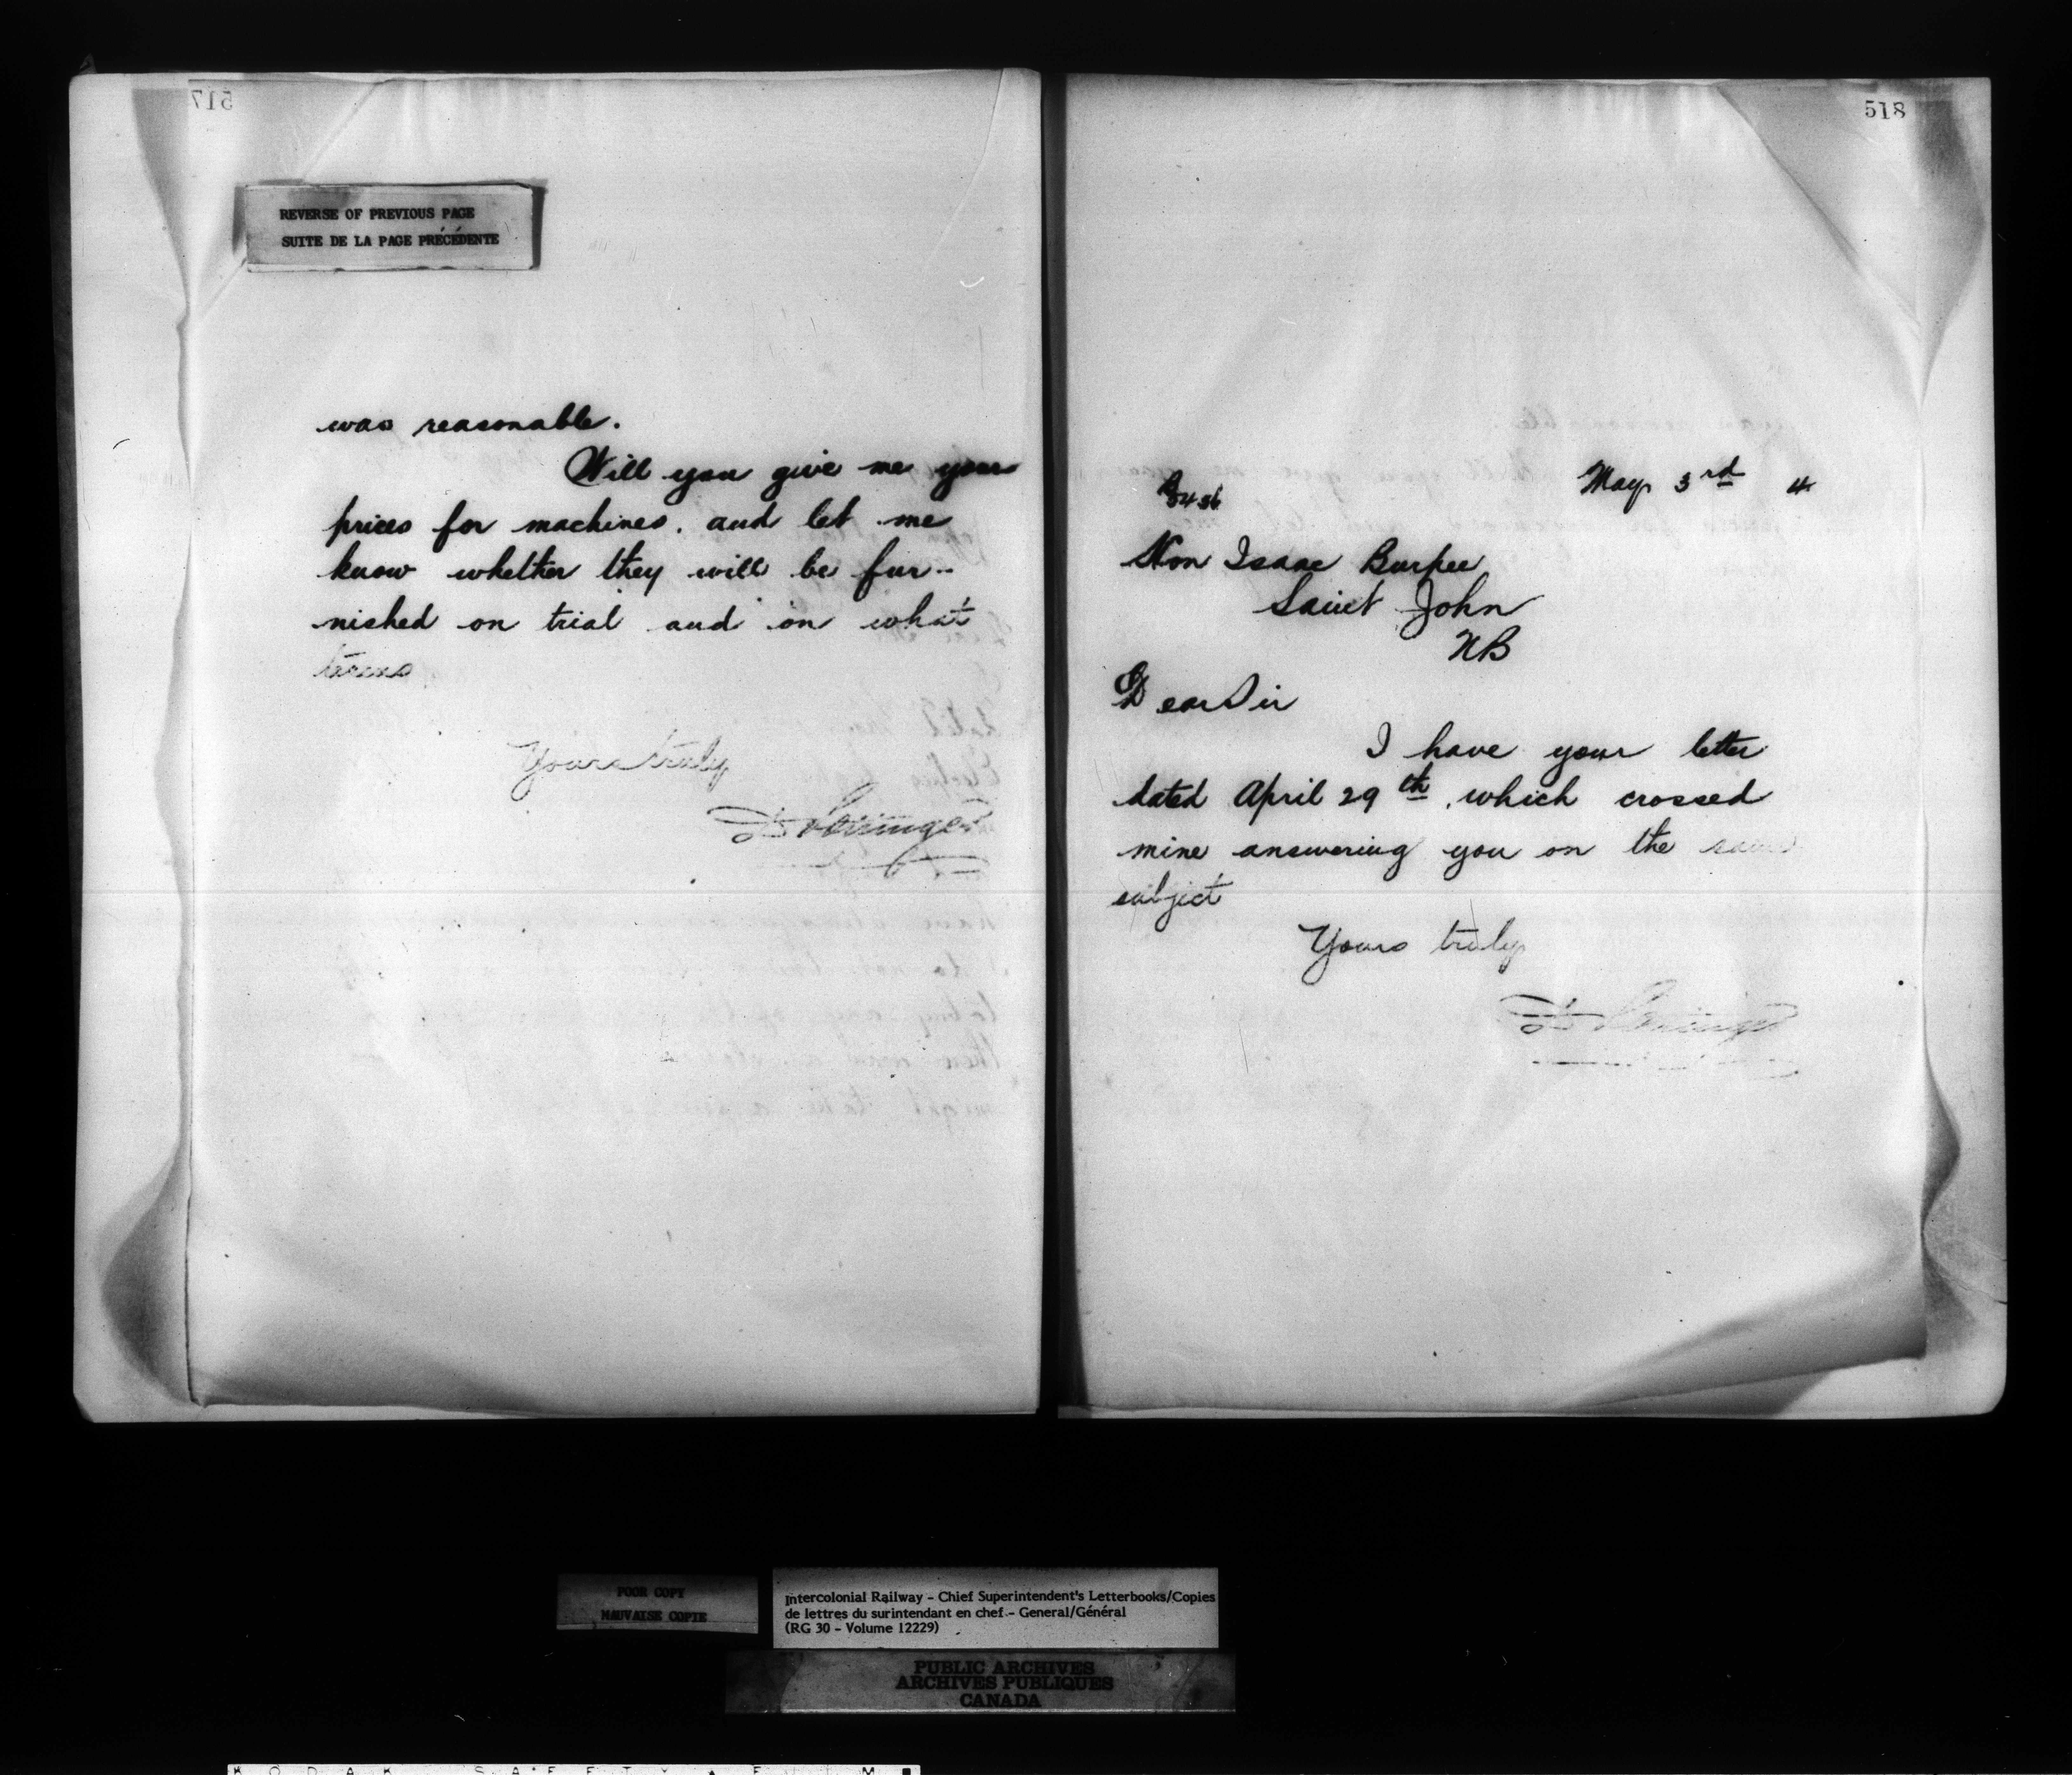 517
REVERSE OF PREVIOUS PAGE
SUITE DE LA PAGE PRÉCÉDENTE
was reasonable.
Will you give me your
prices for machines. and let me
know whether they will be fur-
nished on trial and on what
terms
Yours truly
D Pottinger
518
May 3rd 4
Hon Isaac Burpee
Saint John
NB
Dear Sir
I have your letter
dated April 29th, which crossed
mine answering you on the same
subject
Yours truly
D Pottinger
POOR COPY
MAUVAISE COPIE
Intercolonial Railway - Chief Superintendent's Letterbooks/Copies
de lettres du surintendant en chef - General/Général
(RG 30 - Volume 12229)
PUBLIC ARCHIVES
ARCHIVES PUBLIQUES
CANADA
KODAK SAFETY FILM